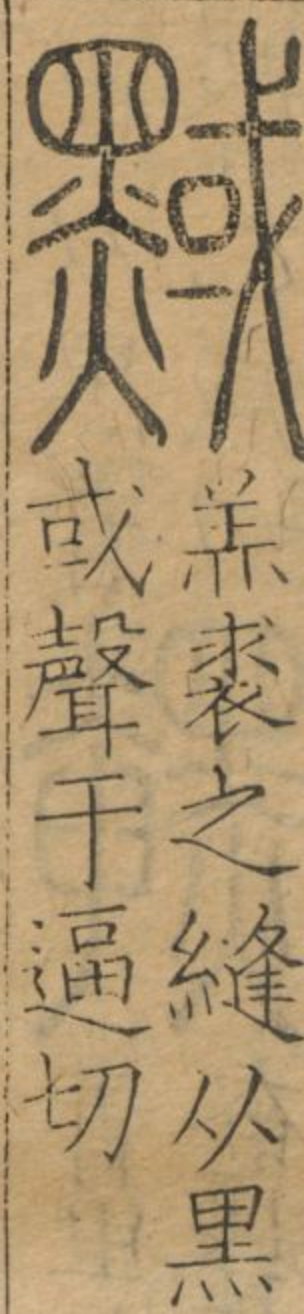 䵧
羔裘之縫从黑
或聲干逼切